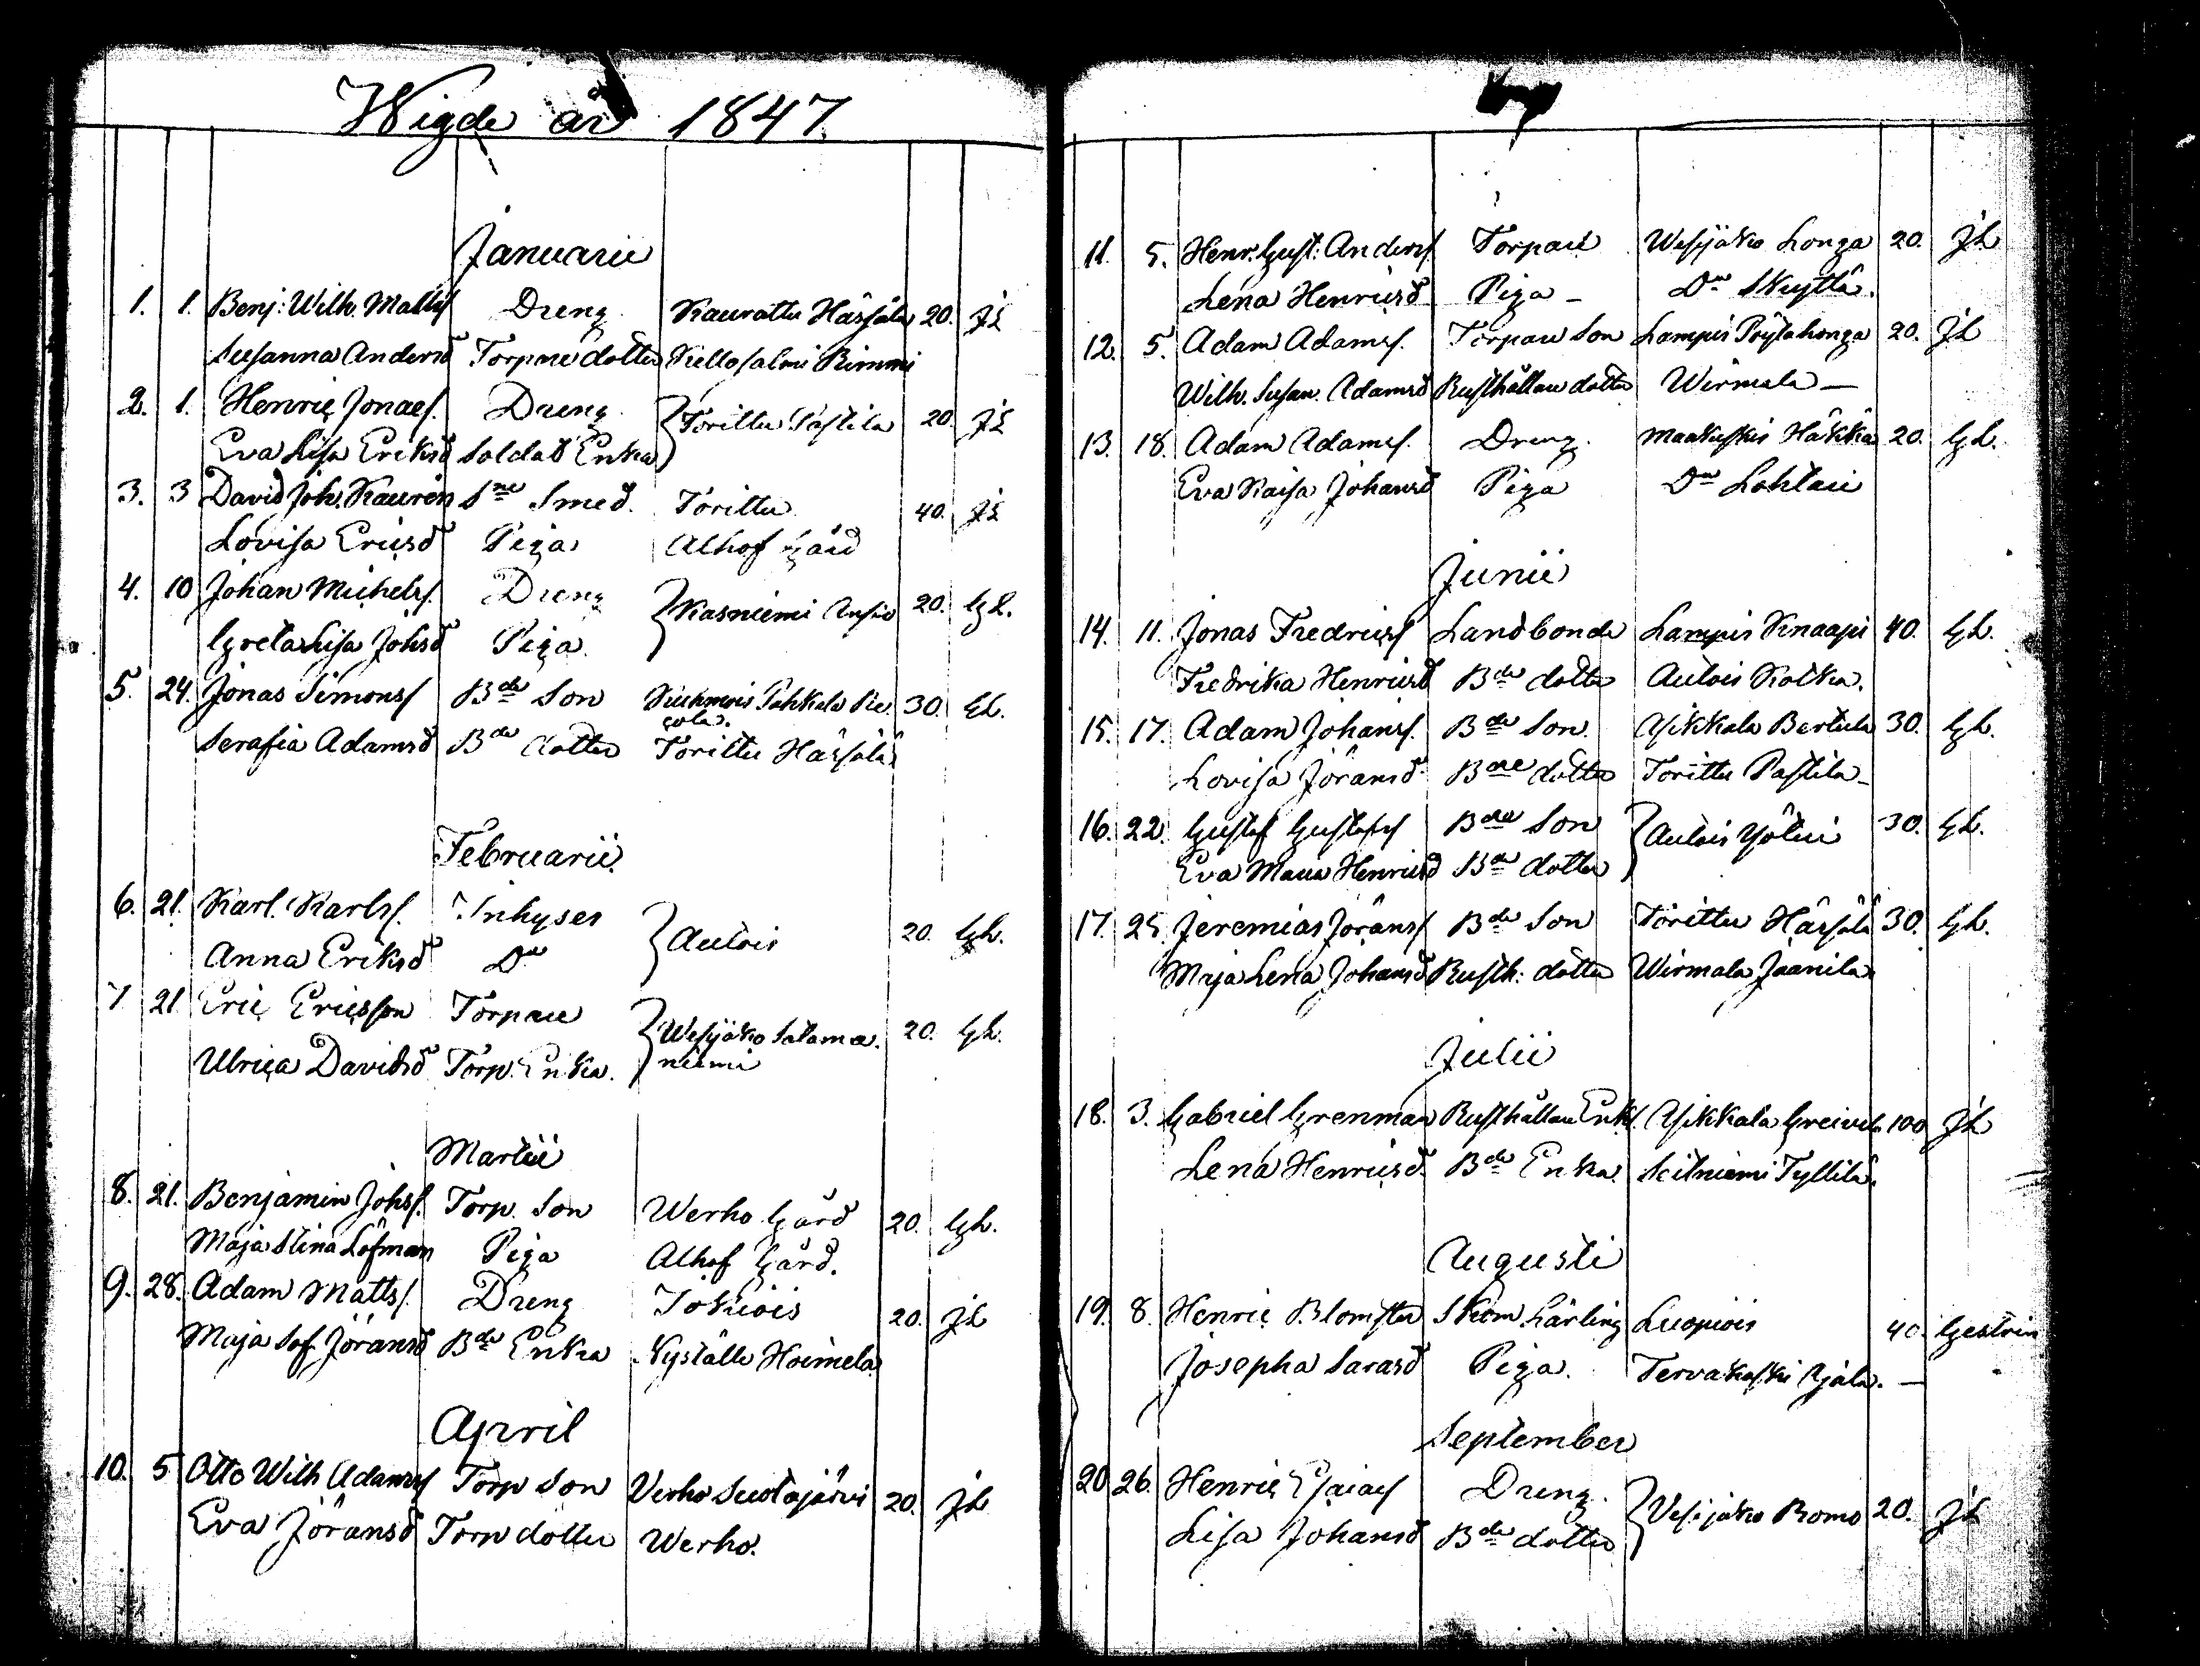 Wigde år 1847.
Januarii
1. 1. Benj: Wilh. Matts/ Dreng Kaurattu Härjälä 20. JL
Susanna Andersd Torpare dotter Kellosalmi Rimmi
2. 1. Henric Jonaes/. Dreng Torittu Pastila 20. JL
Eva Lisa Eriksd Soldat Enka
3. 3 David Joh. Kaurén Sne Smed. Torittu 40. JL
Lovisa Ericsd Piga Alhof Gård
4. 10 Johan Michels/. Dreng Kasniemi Ansio 20. GL.
Greta Lisa Johsd Piga
5. 24. Jonas Simons/ Bde Son Pahkala 30. GL.
Serafia Adamsd Bde dotter Torittu Härjälä
Februarii.
6. 21. Karl Karls/. Inhyses Autois 20. GL.
Anna Eriksd Do
7 21 Eric Ericsson Torpare Wesijako Salama 20. GL.
Ulrica Davidsd Torp. Enka. niemi
Martii
8. 21. Benjamin Johs/. Torp. Son Werho Gård 20. GL.
Maja Stina Löfman Piga Alhof Gård.
9. 28. Adam Matts/. Dreng Jokiois 20. JL
Maja Sof. Göransd Bde Enka Nyställe Hoimela
April
10. 5 Otto Wilh Adams/ Torp Son Verho Suolajärvi 20. JL
Eva Jöransd Torp dotter Werho.
11. 5. Henr. Gust: Anders/. Torpare Wesijako Longa 20. JL
Lena Henricsd Piga - Do Skyttä.
12. 5. Adam Adams/. Torpare Son Lampis Pöytahonga 20. JL
Wilh. Susan. Adamsd Rusthållare dotter Wirmala —
13. 18. Adam Adams/. Dreng. Maakeskis Häkkä 20. GL.
Eva Kaisa Johansd Piga Do Lahtari
Junii
14. 11. Jonas Fredrics/ Landbonde Lampis Knaapi 40. GL.
Fredrika Henricsd Bde dotter Autois Kotka.
15. 17. Adam Johans/. Bde Son. Asikkala Bertula 30. GL.
Lovisa Jöransd Bde dotter Torittu Pastila -
16. 22. Gustaf Gustafs/ Bde Son Autois Yöteri 30. GL.
Eva Maria Henricsd Bde dotter
17. 25. Jeremias Jörans/ Bde Son Torittu Härjälä 30. GL.
Maja Lena Johansd Rusth: dotter Wirmala Jaanila
Julii
18. 3. Gabriel Grenman Rusthållare Enkl. Asikkala Greivil 100 JL
Lena Henricsd. Bde Enka. Seitniemi Tyllilä.
Augusti
19. 8. Henric Blomster Skom Lärling Luopiois 40. Gestrin
Josepha Sarasd Piga. Tervakoski Ajälä. —
September
20. 26. Henric Esaias/ Dreng. Vesijako Romo 20. JL
Lisa Johansd Bde dotter